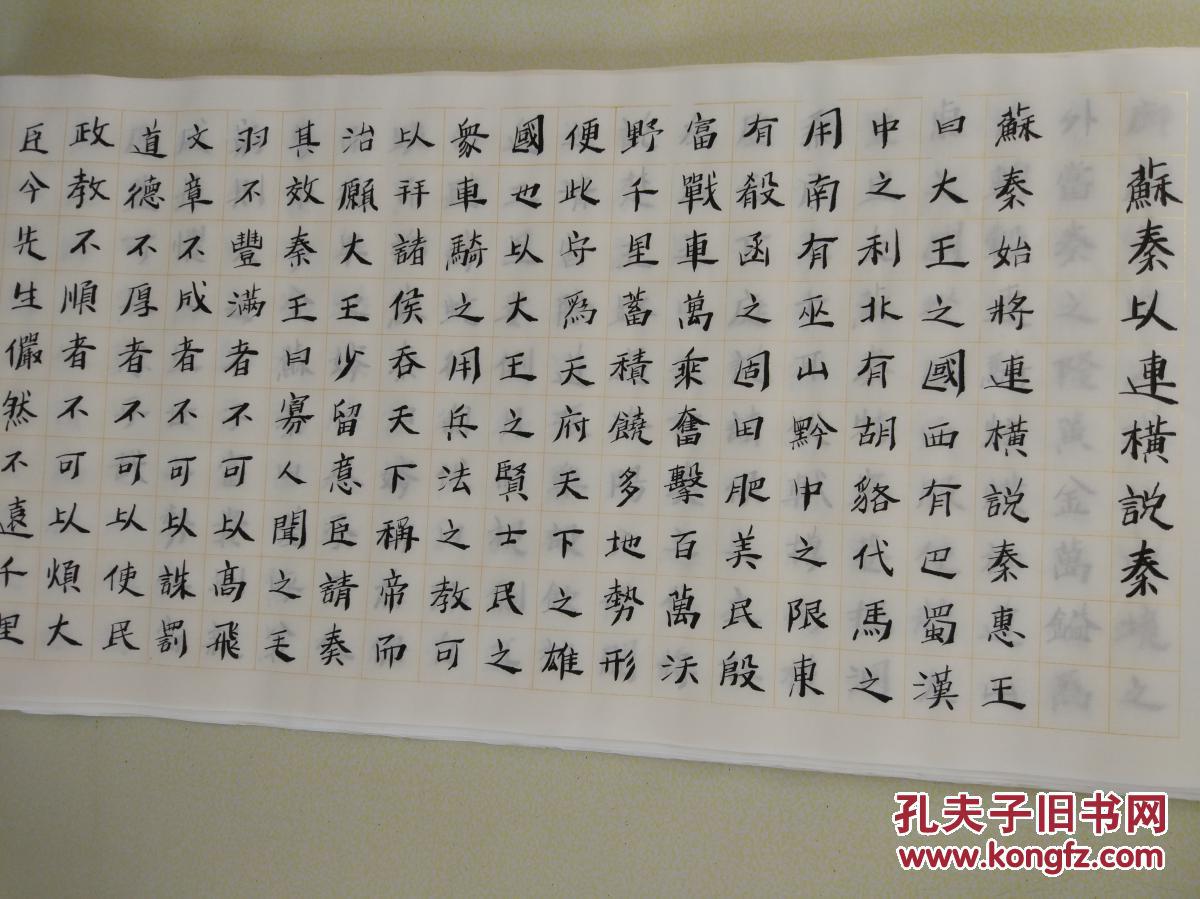 蘇秦以連橫説秦
蘇秦始將連橫説秦惠王
曰大王之國西有巴蜀漢
中之利北有胡貉代馬之
用南有巫山黔中之限東
有殽函之固田肥美民殷
富戰車萬乘奮擊百萬沃
野千里蓄積饒多地勢形
便此守爲天府天下之雄
國也以大王之賢士民之
衆車騎之用兵法之教可
以并諸侯吞天下稱帝而
治願大王少留意臣請奏
其效秦王曰寡人聞之毛
羽不豐滿者不可以高飛
文章不成者不可以誅罰
道德不厚者不可以使民
政教不順者不可以煩大
臣今先生儼然不遠千里
孔夫子旧书网
www.kongfz.com